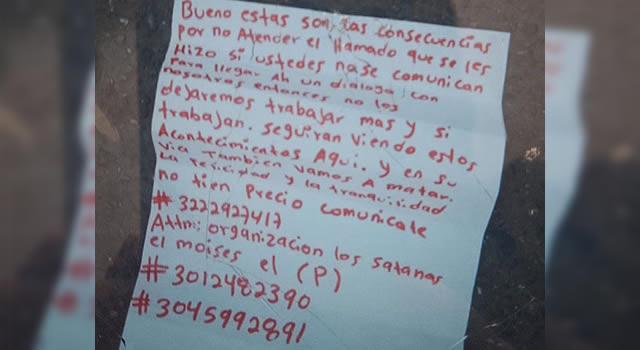 Bueno estas son las consecuencias
por no Atender el llamado que se les
Hizo si ustedes nase comunican
Para llegar Ah un dialogo con
nosotros entonces no los
dejaremos trabajar mas y si
trabajan. seguiran viendo estos
Acontecimientos Aqui. y en su
via Tambien vamos A matar.
La Felicidad y la tranquilidad
no tien Precio comunicate
# 3222927417
Attm: organizacion los satanas
el moises el (P)
# 3012482390
# 3045992891